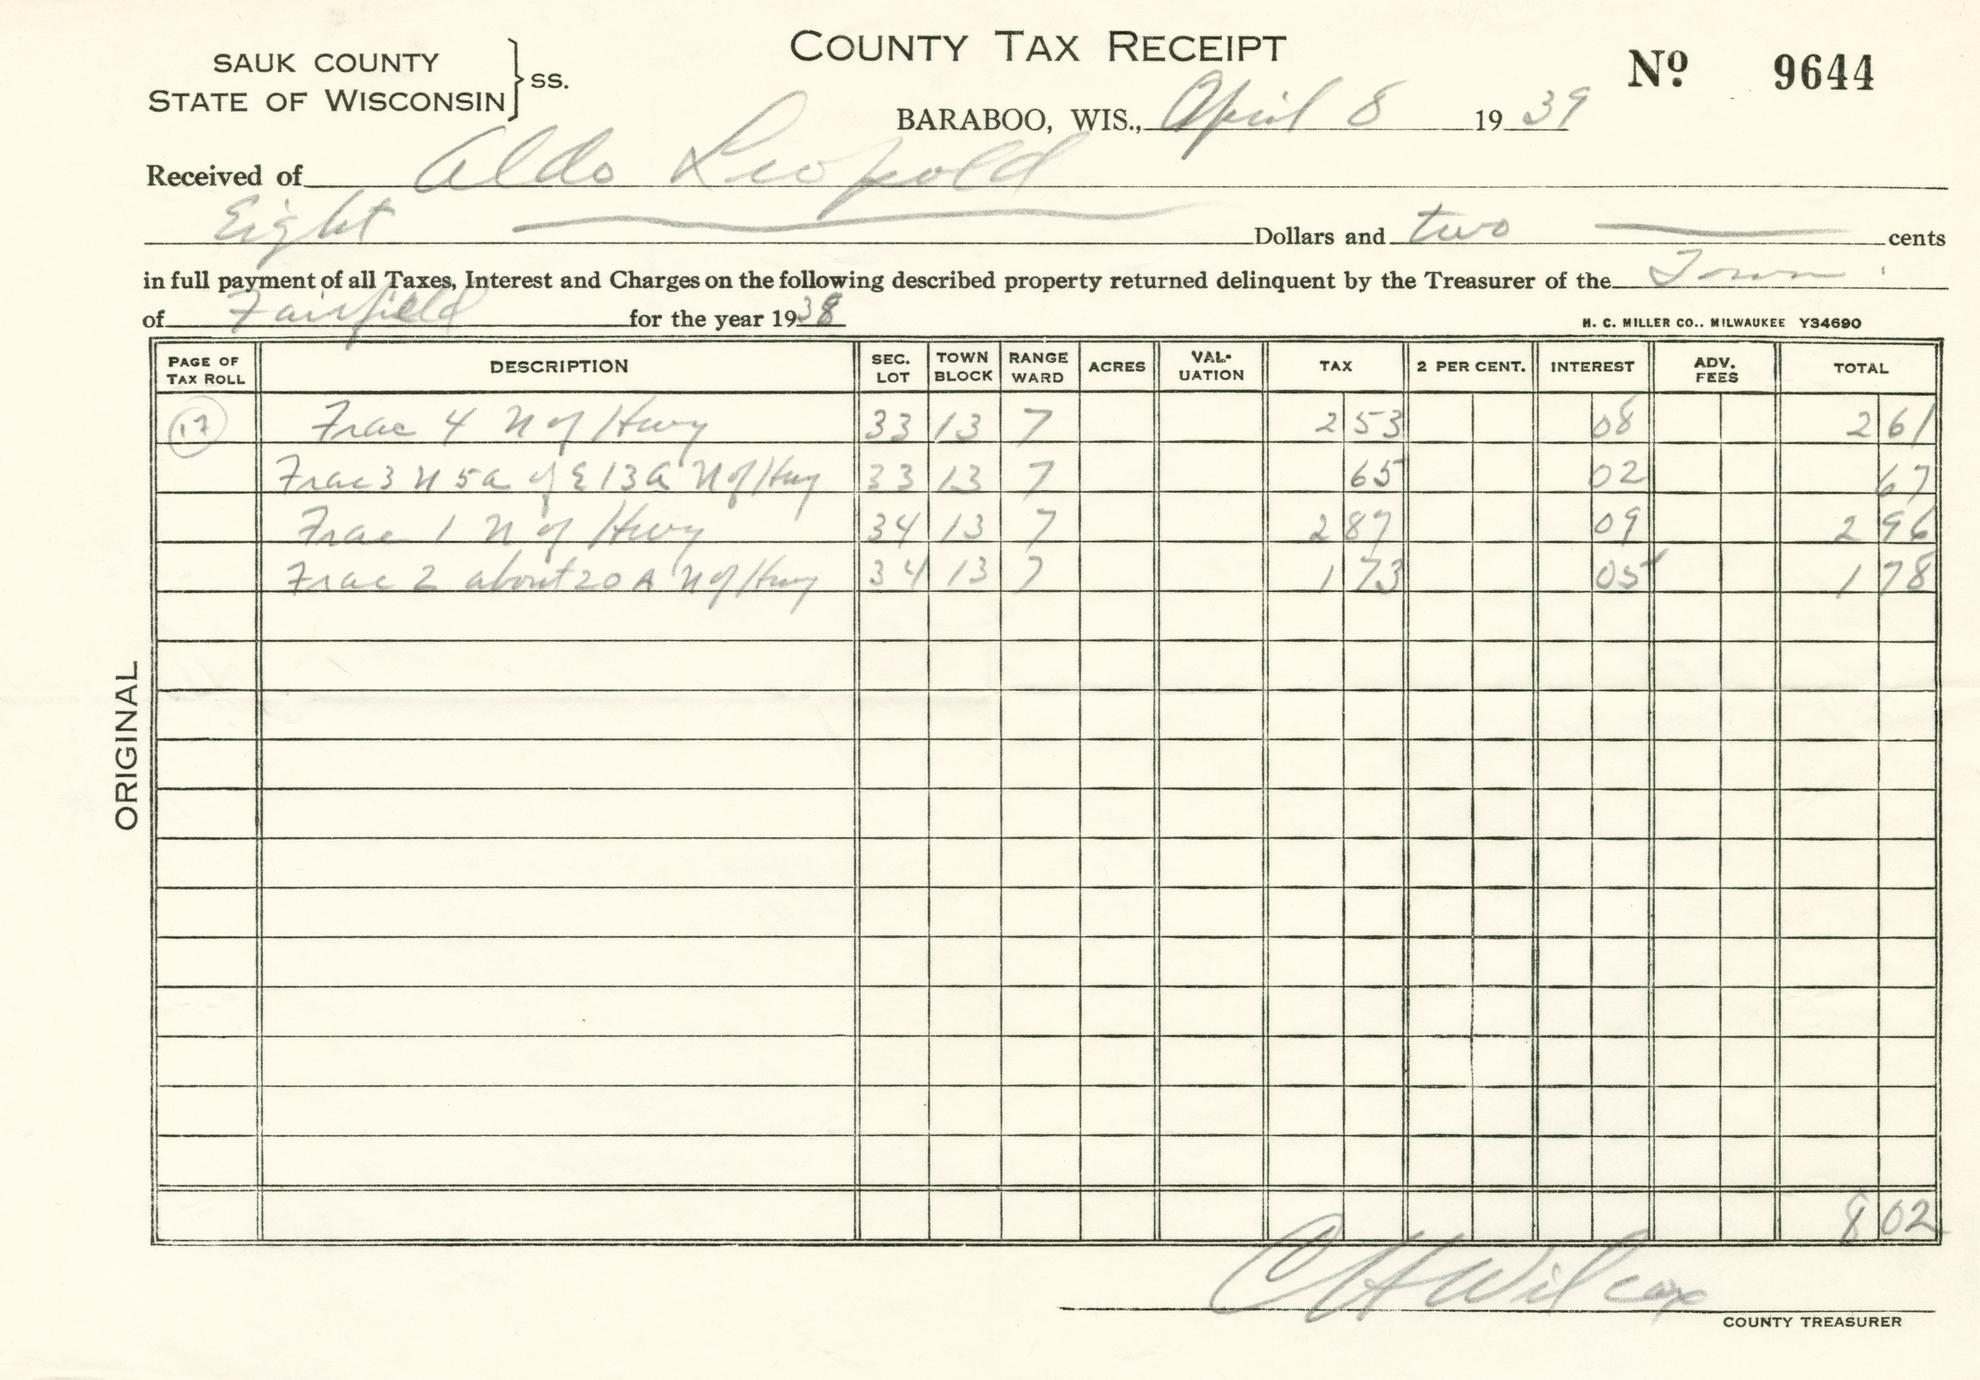 SAUK COUNTY
STATE OF WISCONSIN } SS.
COUNTY TAX RECEIPT
No 9644
BARABOO, WIS., April 8 1939
Received of Aldo Leopold
Eight Dollars and two cents
in full payment of all Taxes, Interest and Charges on the following described property returned delinquent by the Treasurer of the Town
of Fairfield for the year 1938
H. C. MILLER CO., MILWAUKEE Y34690
PAGE OF TAX ROLL DESCRIPTION SEC. LOT TOWN BLOCK RANGE WARD ACRES VAL-UATION TAX 2 PER CENT. INTEREST ADV. FEES TOTAL
17 Frac 4 N of Hwy 33 13 7 2 53 08 2 61
Frac 3 N 5a of E 13A N of Hwy 33 13 7 65 02 67
Frac 1 N of Hwy 34 13 7 2 87 09 2 96
Frac 2 about 20 A N of Hwy 34 13 7 1 73 05 1 78
ORIGINAL
8 02
C H Wilcox
COUNTY TREASURER